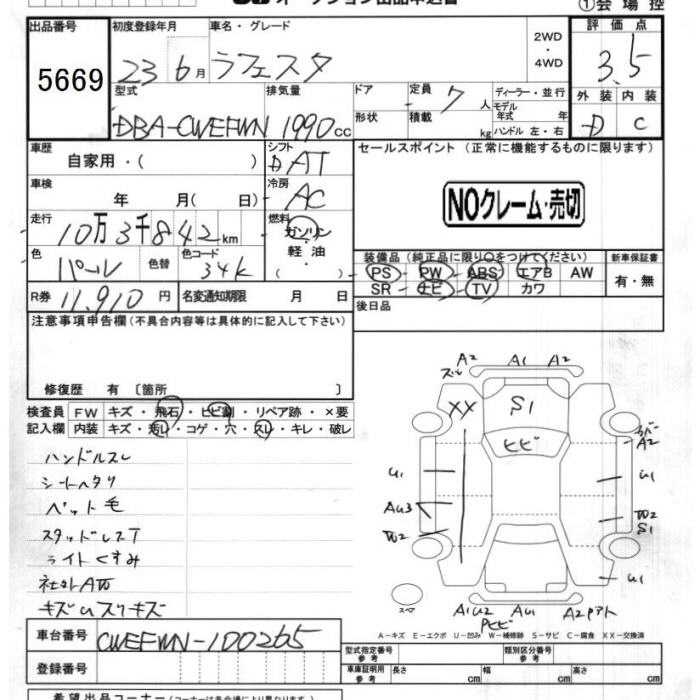 ①会場控
出品番号
5669
初度登録年月
23 6月
車名・グレード
ラフェスタ
2WD
・
4WD
評価点
3.5
外装 内装
D C
型式
DBA-CWEFWN
排気量
1990cc
ドア
形状
定員 7人
積載 kg
ディーラー・並行
モデル
年式 年
ハンドル 左・右
車歴
自家用・( )
シフト
DAT
セールスポイント (正常に機能するものに限ります)
NOクレーム・売切
車検
年 月(日)
冷房
AC
走行
10万3千842km
燃料
ガソリン
・
軽油
・
( )
色
パール
色替
色コード
34K
装備品(純正品に限り○をつけてください)
PS PW ABS エアB AW
SR ナビ TV カワ
新車保証書
有・無
R券 11,910円
名変通知期限 月 日
後日品
注意事項申告欄(不具合内容等は具体的に記入して下さい)
修復歴 有 〔箇所 〕
検査員
記入欄
FW キズ・飛石・ヒビ割・リペア跡・×要
内装 キズ・汚れ・コゲ・穴・スレ・キレ・破レ
ハンドルスレ
シートヘタリ
ペット毛
スタッドレスT
ライトくすみ
社外AW
キズUスリキズ
A2
ズレ
A1
A2
XX
S1
ヒビ
カバー
A2
U1
U1
AU3
W2
W2
S1
U1
スペア
A1U2
ヒビ
AU1
A2Pアト
A-キズ E-エクボ U-凹み W-補修跡 S-サビ C-腐食 XX-交換済
車台番号
CWEFWN-100265
登録番号
型式指定番号
参考
類別区分番号
参考
車庫証明用
参考
長さ cm
幅 cm
高さ cm
希望出品コーナー(コーナーは各会場により異なります)